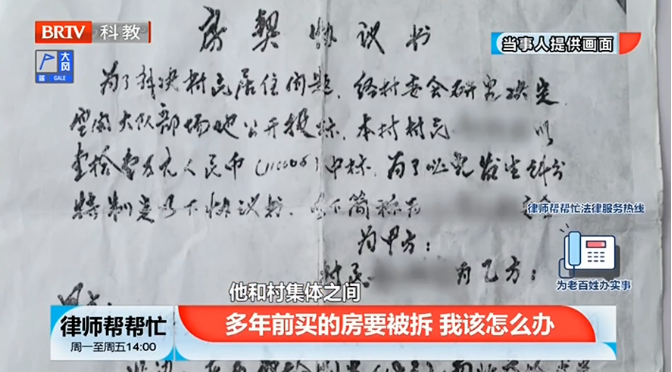 BRTV 科教
大风
GALE
当事人提供画面
房契协议书
为了解决村民居住问题，经村委会研究决定
大队部场地公开投标，本村村民 以
壹拾壹万元人民币 中标，为了避免发生纠分
特制定以下协议书，以下简称为
为甲方：
村民 为乙方：
律师帮帮忙法律服务热线
为老百姓办实事
他和村集体之间
律师帮帮忙
周一至周五14:00
多年前买的房要被拆 我该怎么办